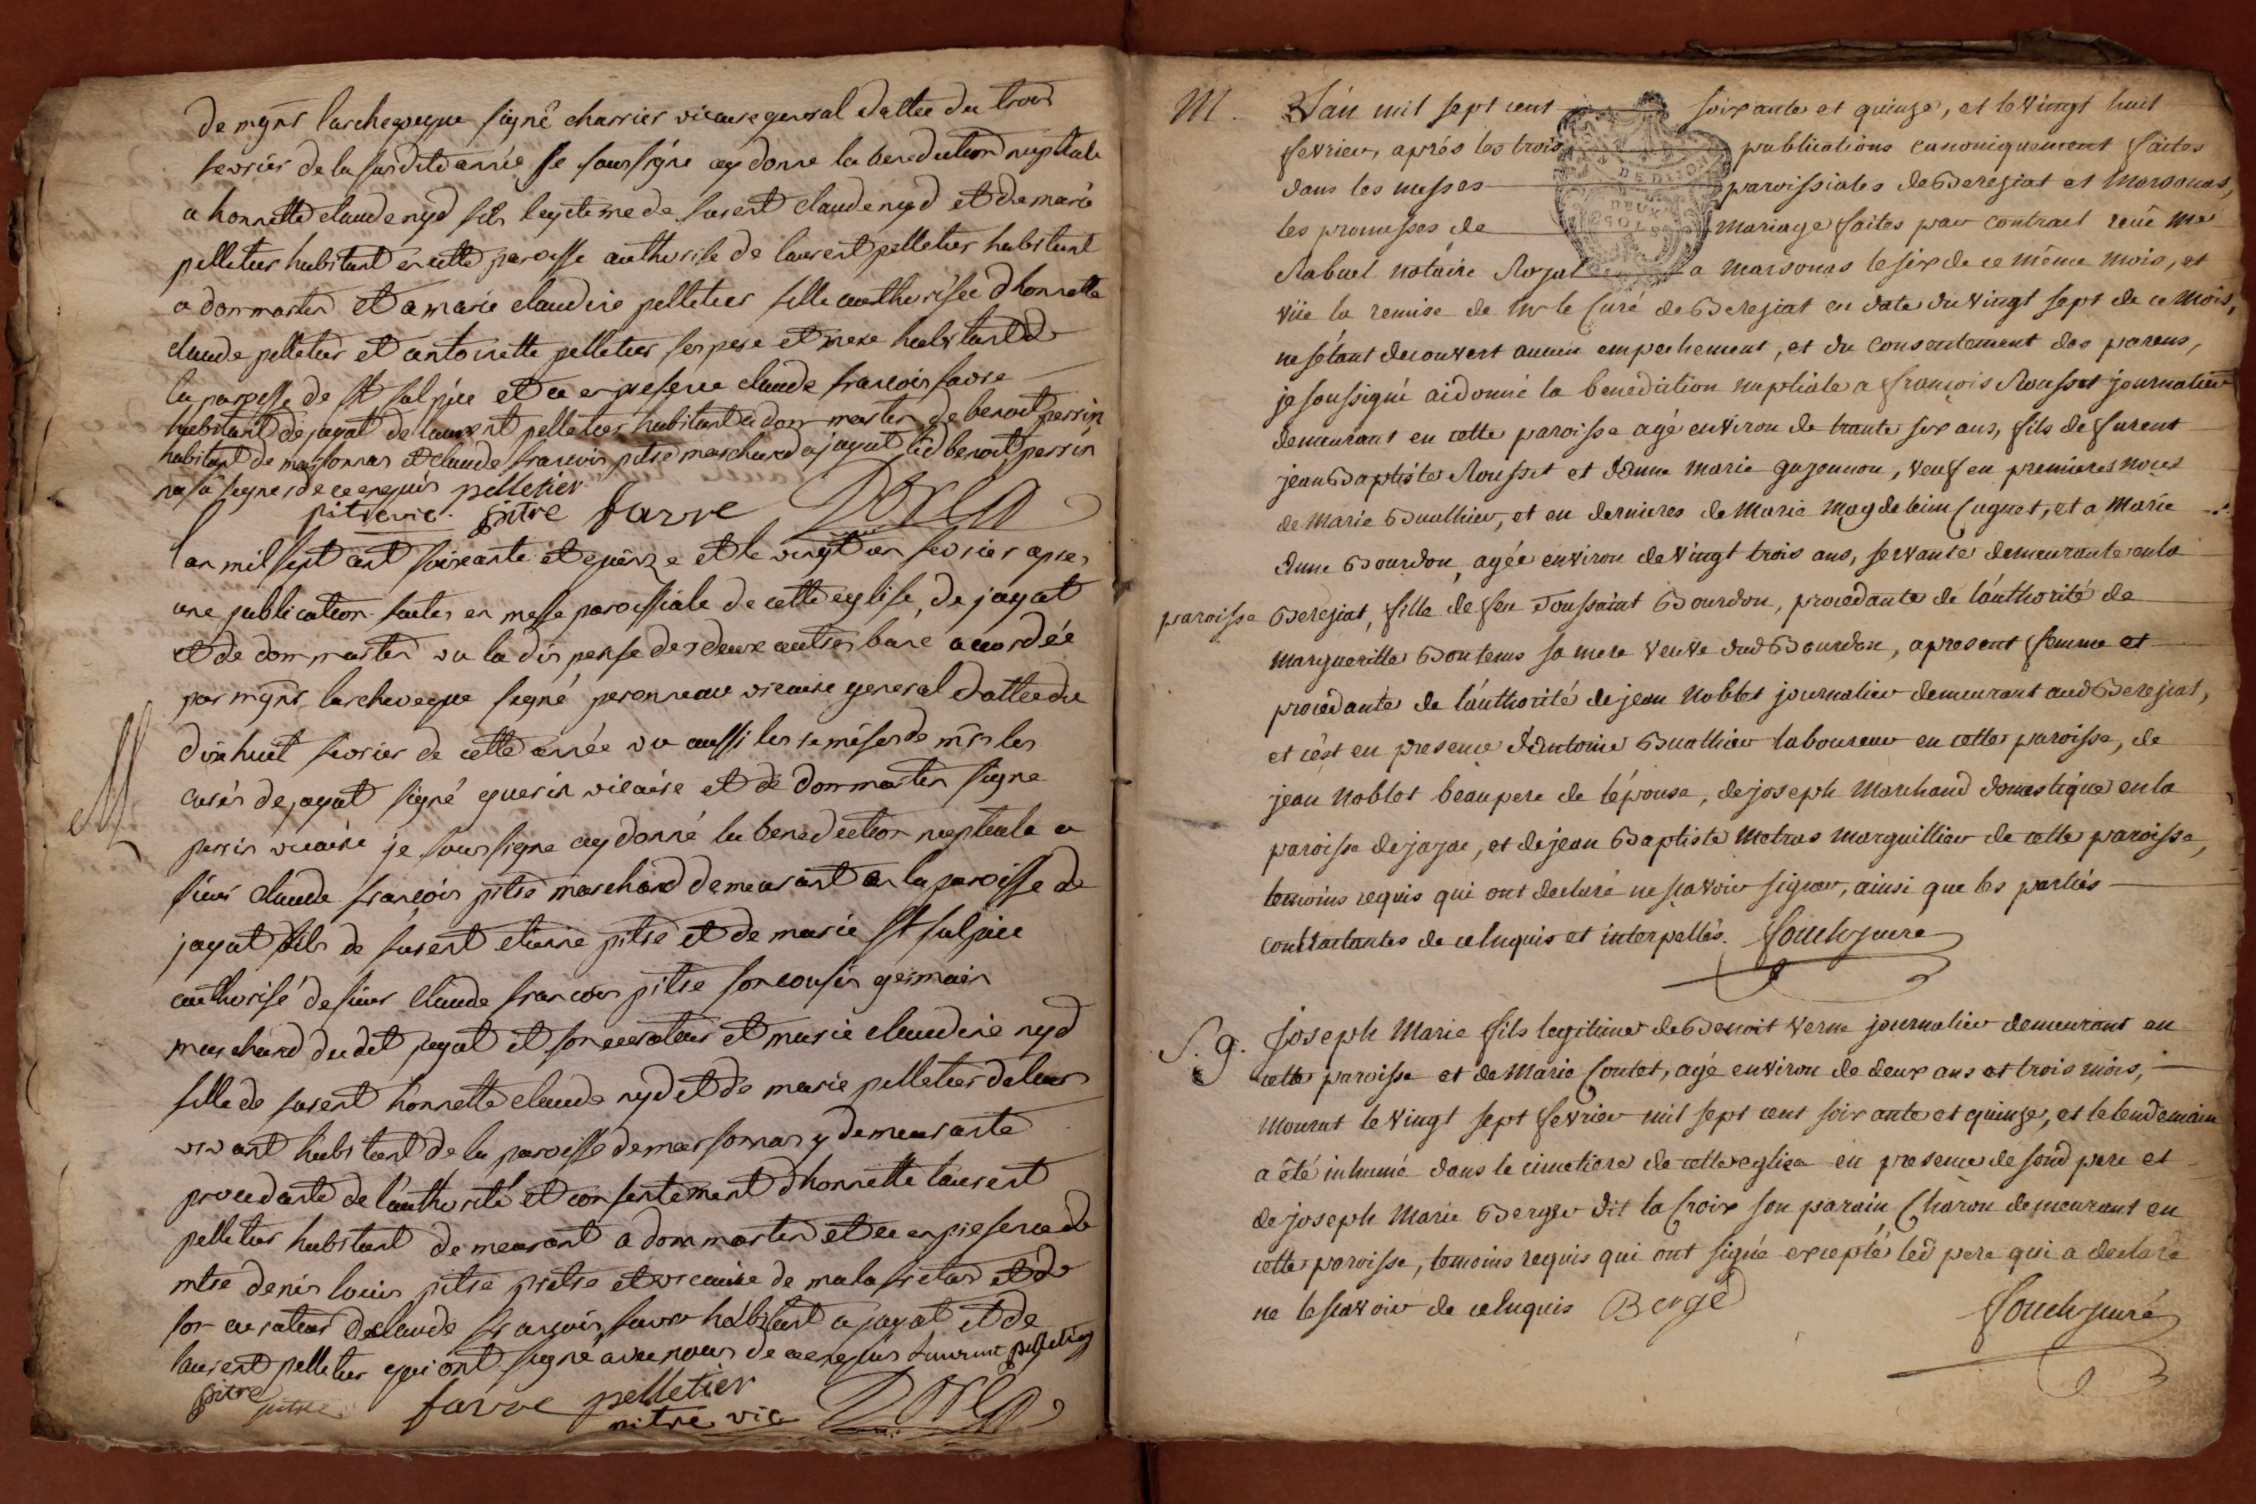 de mgnr larcheveque signé charrier vicaire general dattée du trois
fevrier de la susditte année je soussigné ay donné la benediction nuptiale
a honnette claude nyd fils legitime de furent claude nyd et de marie
pelletier habitant en cette paroisse authorisé de laurent pelletier habitant
a dommartin et a marie claudine pelletier fille authorisée d'honnette
claude pelletier et antoinette pelletier ses pere et mere habitants de
la paroisse de st sulpice et ce en presence claude francois favre
habitant de jayat de laurent pelletier habitant a dommartin de benoit perrin
habitant de marsonnas et claude francois pitre marchand a jayat led benoit perrin
na sû signer de ce enquis pelletier
pitre vic. pitre favre
lan mil sept cent soixante et quinze et le vingt un fevrier apres
une publication faites en messe paroissiale de cette eglise, de jayat
et de dommartin vu la dispense des deux autres bans accordée
par mgnr larcheveque signé peronneau vicaire general dattée du
dixhuit fevrier de cette année vu aussi les remises de mrs les
curés de jayat signé guerin vicaire et de dommartin signe
perrin vicaire je soussigné ay donné la benediction nuptiale a
M
sieur claude francois pitre marchand demeurant en la paroisse de
jayat fils de furent etienne pitre et de marie st sulpice
authorisé de sieur claude francois pitre son cousin germain
marchand dudit jayat et son curateur et marie claudine nyd
fille de furent honnette claude nyd et de marie pelletier de leur
vivant habitant de la paroisse de marsonnas y demeurante
procedante de l'authorité et consentement d'honnette laurent
pelletier habitant demeurant a dommartin et ce en presence de
mtre denis louis pitre pretre et vicaire de malafretas et de
son curateur de claude francois favre habitant a jayat et de
laurent pelletier qui ont signé avec nous de ce enquis laurent pelletier
pitre pitre favre pelletier
pitre vic
M. L'an mil sept cent soixante et quinze, et le vingt huit
fevrier, aprés les trois publications canoniquement faites
dans les messes paroissiales de Berejiat et Marsonas,
DE DIJON
DEUX
SOLS
les promesses de mariage faites par contract reçû Me
Rabuel notaire Royal a Marsonas le six de ce même mois, et
vüe la remise de Mr le Curé de Berejiat en date du vingt sept de ce mois,
ne s'étant decouvert aucun empechement, et du consentement des parens,
je soussigné ai donné la benediction nuptiale a françois Rousset journalier
demeurant en cette paroisse agé environ de trante six ans, fils de furent
jean Baptiste Rousset et Anne Marie guyonnon, veuf en premieres noces
de Marie Buathier, et en dernieres de Marie Magdeleine Cagnet, et a Marie
Anne Bourdon, agée environ de vingt trois ans, servante demeurante en la
paroisse Berejiat, fille de feu Toussaint Bourdon, procedante de l'authorité de
Margueritte Bontems sa mere veuve dud Bourdon, apresent femme et
procedante de l'authorité de jean Noblet journalier demeurant aud Berejiat,
et c'est en presence d'Antoine Buathier laboureur en cette paroisse, de
jean Noblet beaupere de l'épouse, de joseph Marchand domestique en la
paroisse de jajac, et de jean Baptiste Metras marguillier de cette paroisse,
temoins requis qui ont declaré ne sçavoir signer, ainsi que les parties
contractantes de ce enquis et interpellés. Fouch curé
S. g. Joseph Marie fils legitime de Benoit Verne journalier demeurant en
cette paroisse et de Marie Contet, agé environ de deux ans et trois mois,
mourut le vingt sept fevrier mil sept cent soixante et quinze, et le lendemain
a été inhumé dans le cimetiere de cette eglise en presence de son d pere et
de joseph Marie Berger dit la Croix son parain Charon demeurant en
cette paroisse, temoins requis qui ont signé excepté led pere qui a declaré
ne le sçavoir de ce enquis Bergé Fouch curé